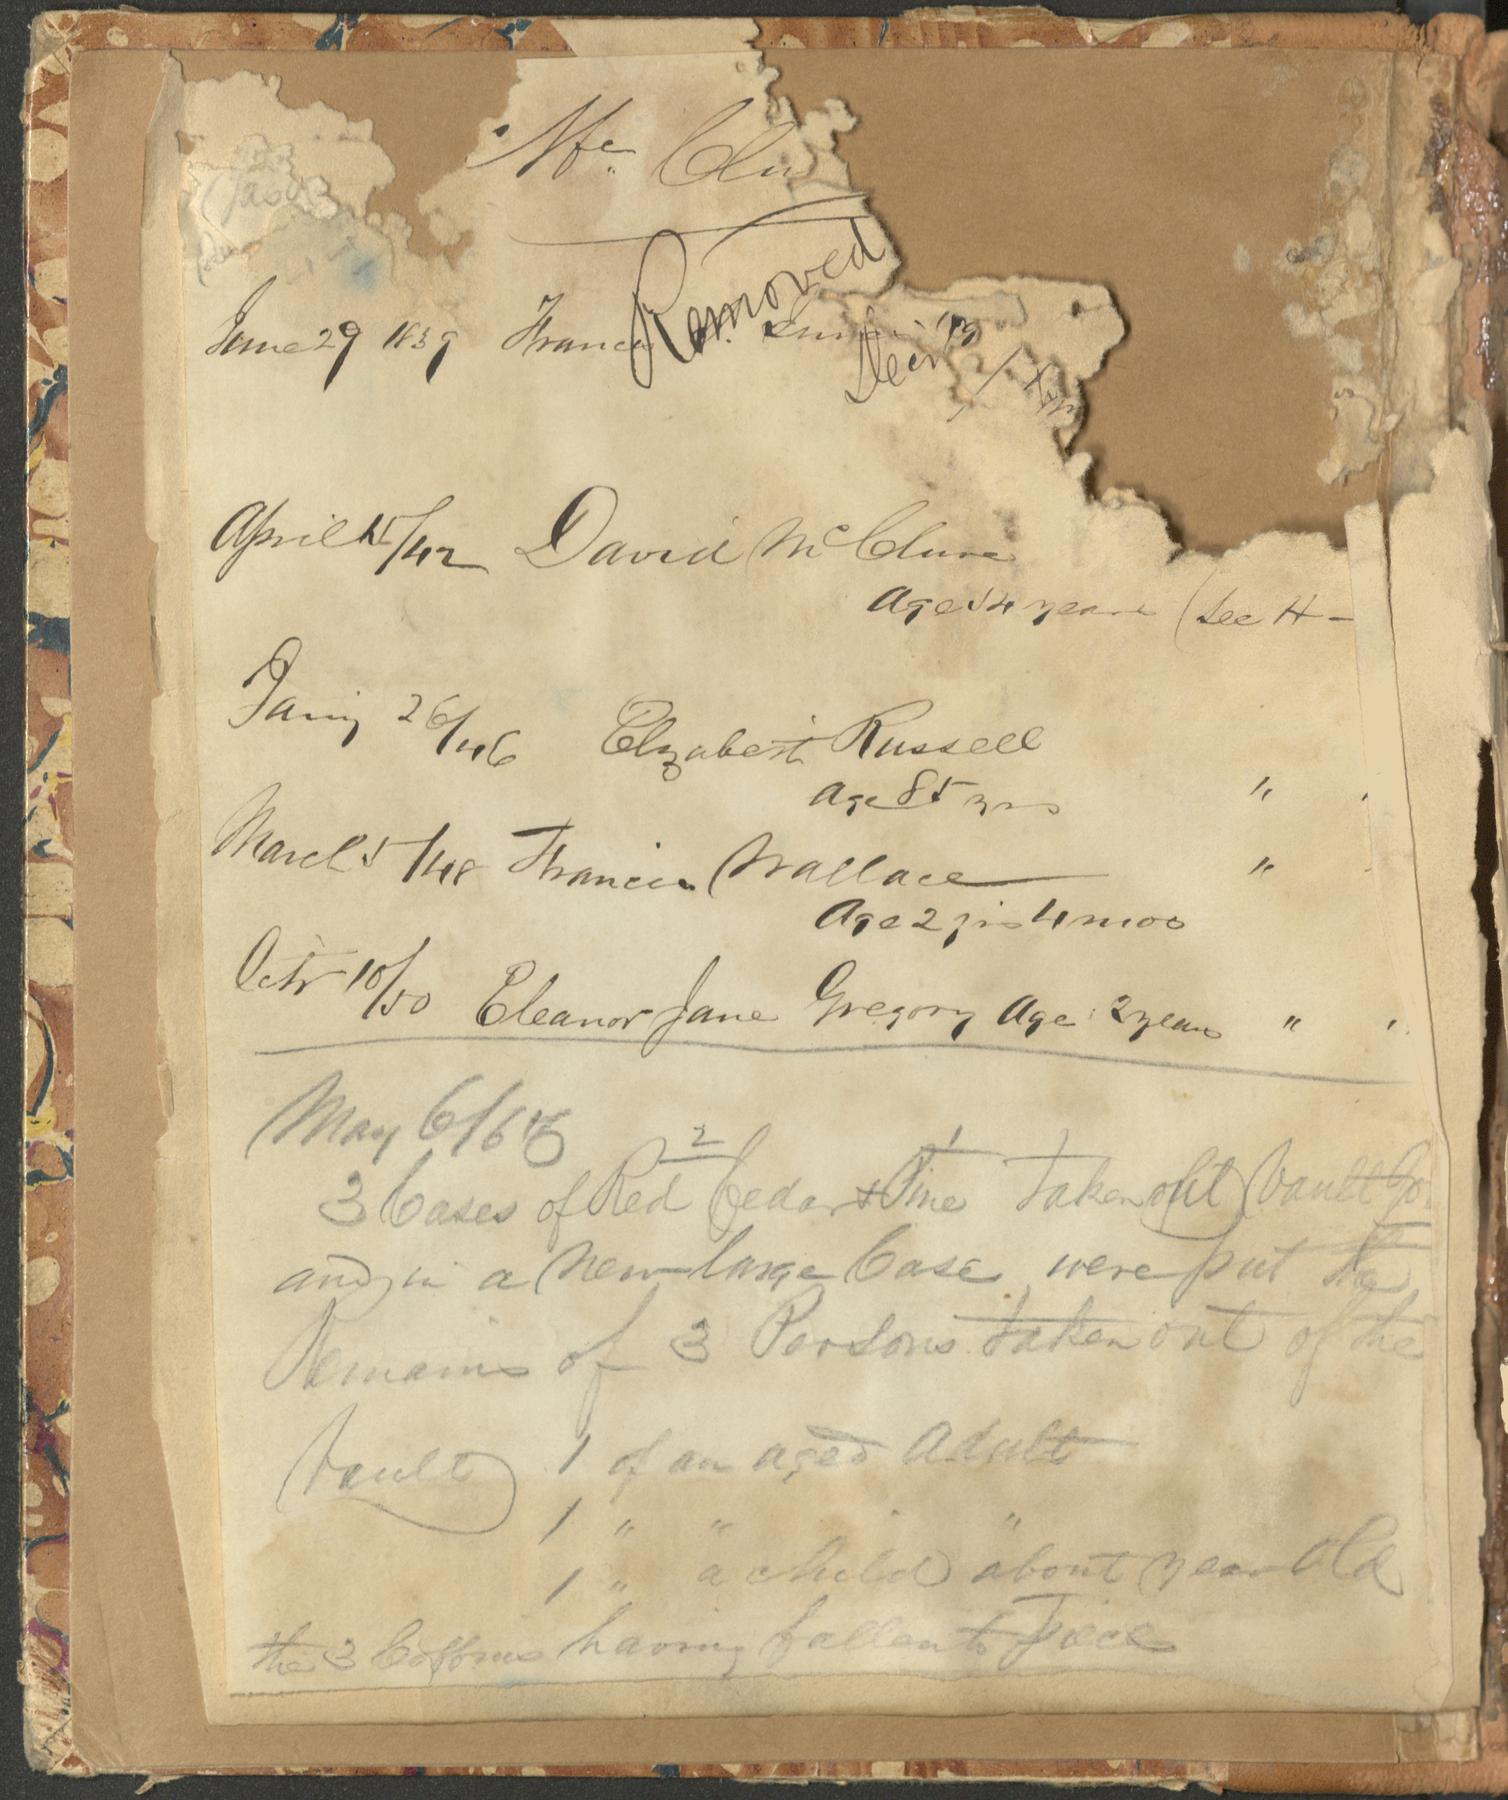 Mc Clu
Removed
June 29 1839 Francis
Decr
April 15/42 David McClure
Age 54 years (See H-
Jany 26/46 Elizabeth Russell
Age 85 yrs "
March 5/48 Francis Wallace "
Age 2 yrs 4 mos
Octr 10/50 Eleanor Jane Gregory Age 2 years " "
May 6/
2 1
3 Cases of Red Cedar & Pine taken out Vault
and in a New large Case were put the
Remains of 3 Persons taken out of the
Vault 1 of an aged Adult
1 " " "
1 " a child about year old
the 3 Coffins having fallen to Piece